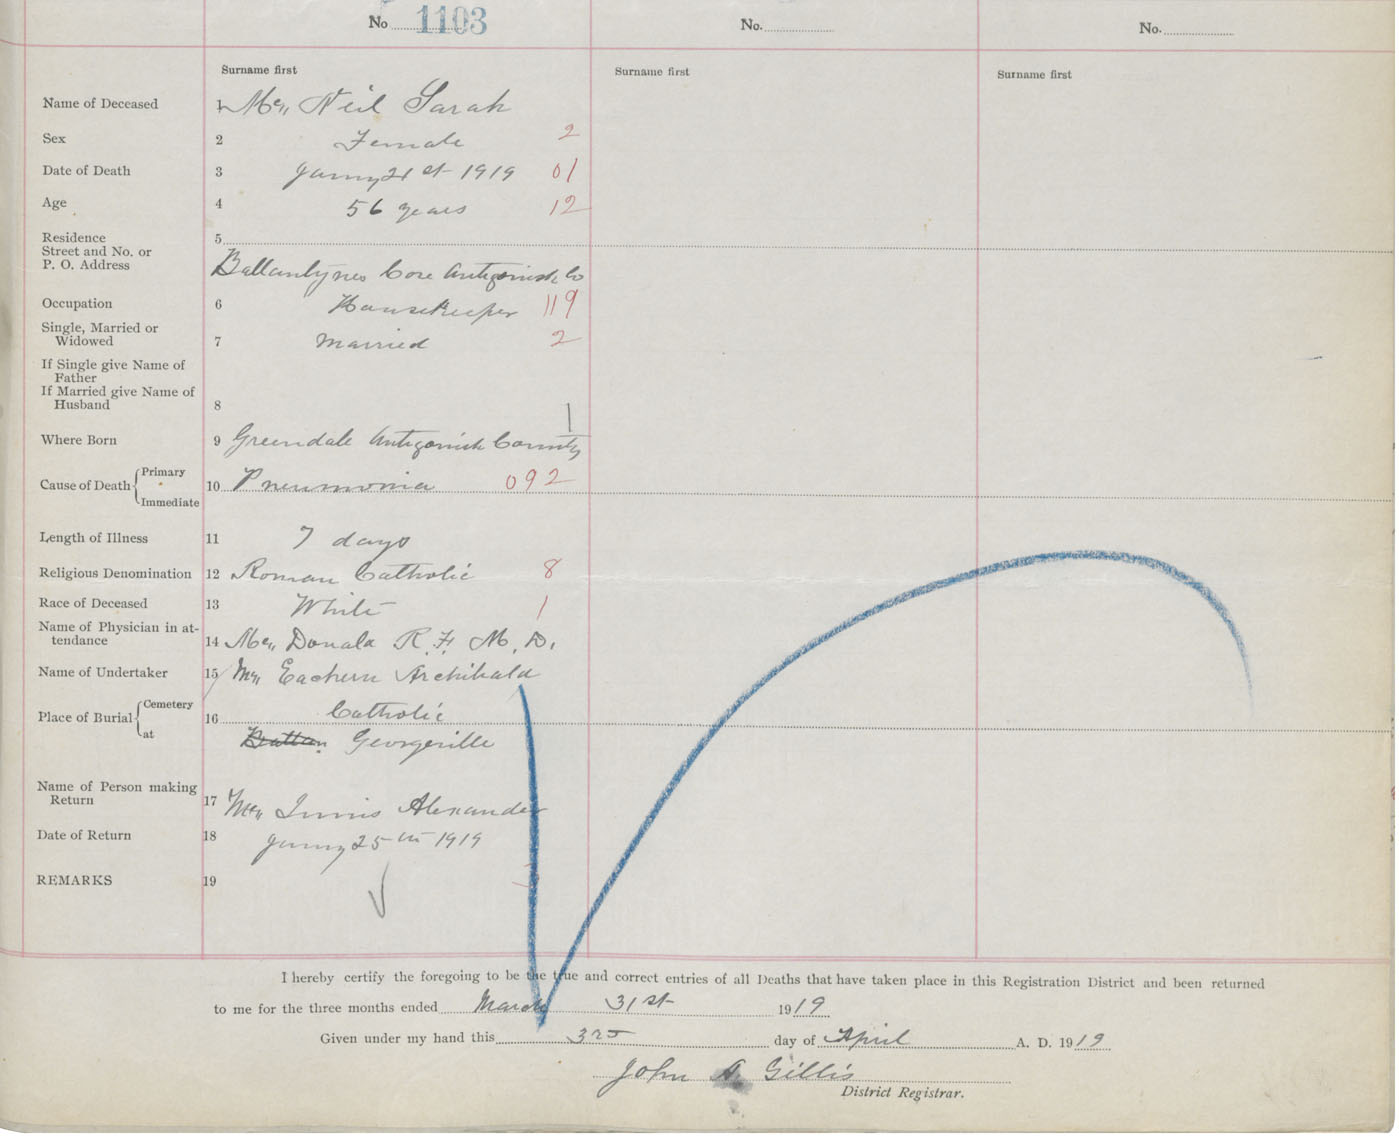 No. 1103 No. No.
Surname first Surname first Surname first
Name of Deceased 1 Mc Neil Sarah
Sex 2 Female 2
Date of Death 3 Janny 21st 1919 01
Age 4 56 years 12
Residence 5
Street and No. or
P. O. Address Ballantynes Cove Antigonish Co
Occupation 6 Housekeeper 119
Single, Married or
Widowed 7 Married 2
If Single give Name of
Father
If Married give Name of
Husband 8
1
Where Born 9 Greendale Antigonish County
Cause of Death Primary
10 Pneumonia 092
Immediate
Length of Illness 11 7 days
Religious Denomination 12 Roman Catholic 8
Race of Deceased 13 White 1
Name of Physician in at-
tendance 14 Mc Donald R. F. M. D.
Name of Undertaker 15 Mc Eachern Archibald
Place of Burial Cemetery 16 Catholic
at Georgeville
Name of Person making
Return 17 Mc Innis Alexander
Date of Return 18 Janny 25th 1919
REMARKS 19
I hereby certify the foregoing to be the true and correct entries of all Deaths that have taken place in this Registration District and been returned
to me for the three months ended March 31st 1919
Given under my hand this day of April A. D. 1919
John A. Gillis
District Registrar.